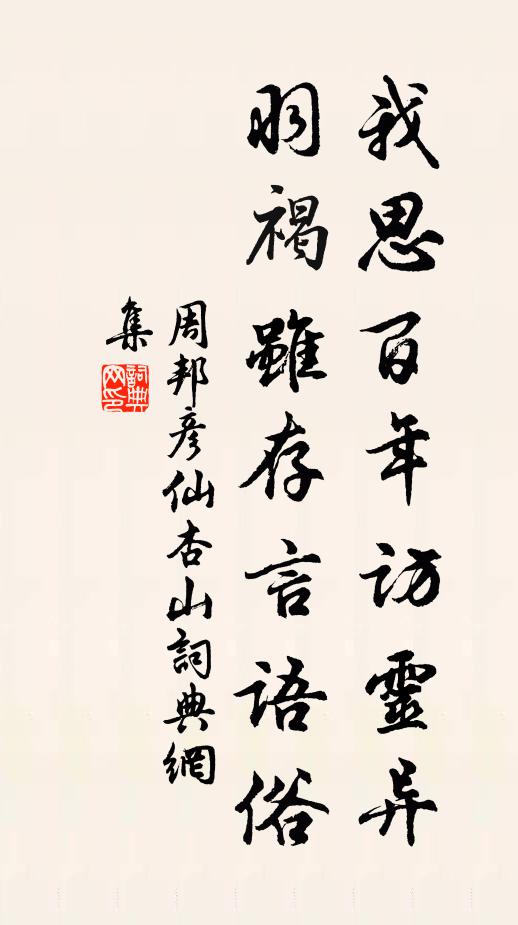 我思百年訪靈异
羽褐雖存言語俗
周邦彦仙杏山詞典網
集
詞典
网印